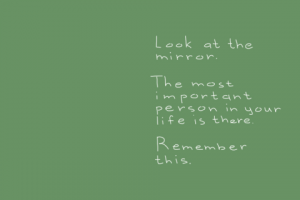 Look at the
mirror.
The most
important
person in your
life is there.
Remember
this.